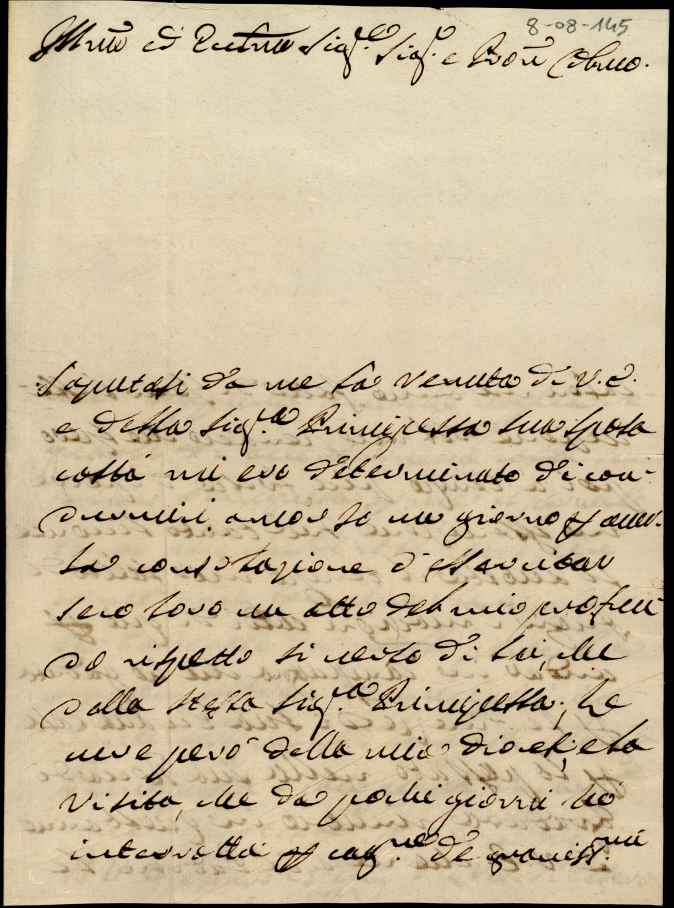 8-08-145
Illmo ed Eccellmo Sig.re Sig.r e Pron Colmo.
Saputasi da me la venuta di V.E.
e della Sig.ra Principessa sua sposa
costà mi ero determinato di con-
durmici ancor io un giorno
la consolazione d'esercitar
loro un atto del mio profun-
do rispetto sì verso di Lei, che
della stessa Sig.ra Principessa; Le
neve però della mia diocesi, e la
visita, che da pochi giorni hò
interrotta p cag.ne de graviss.mi